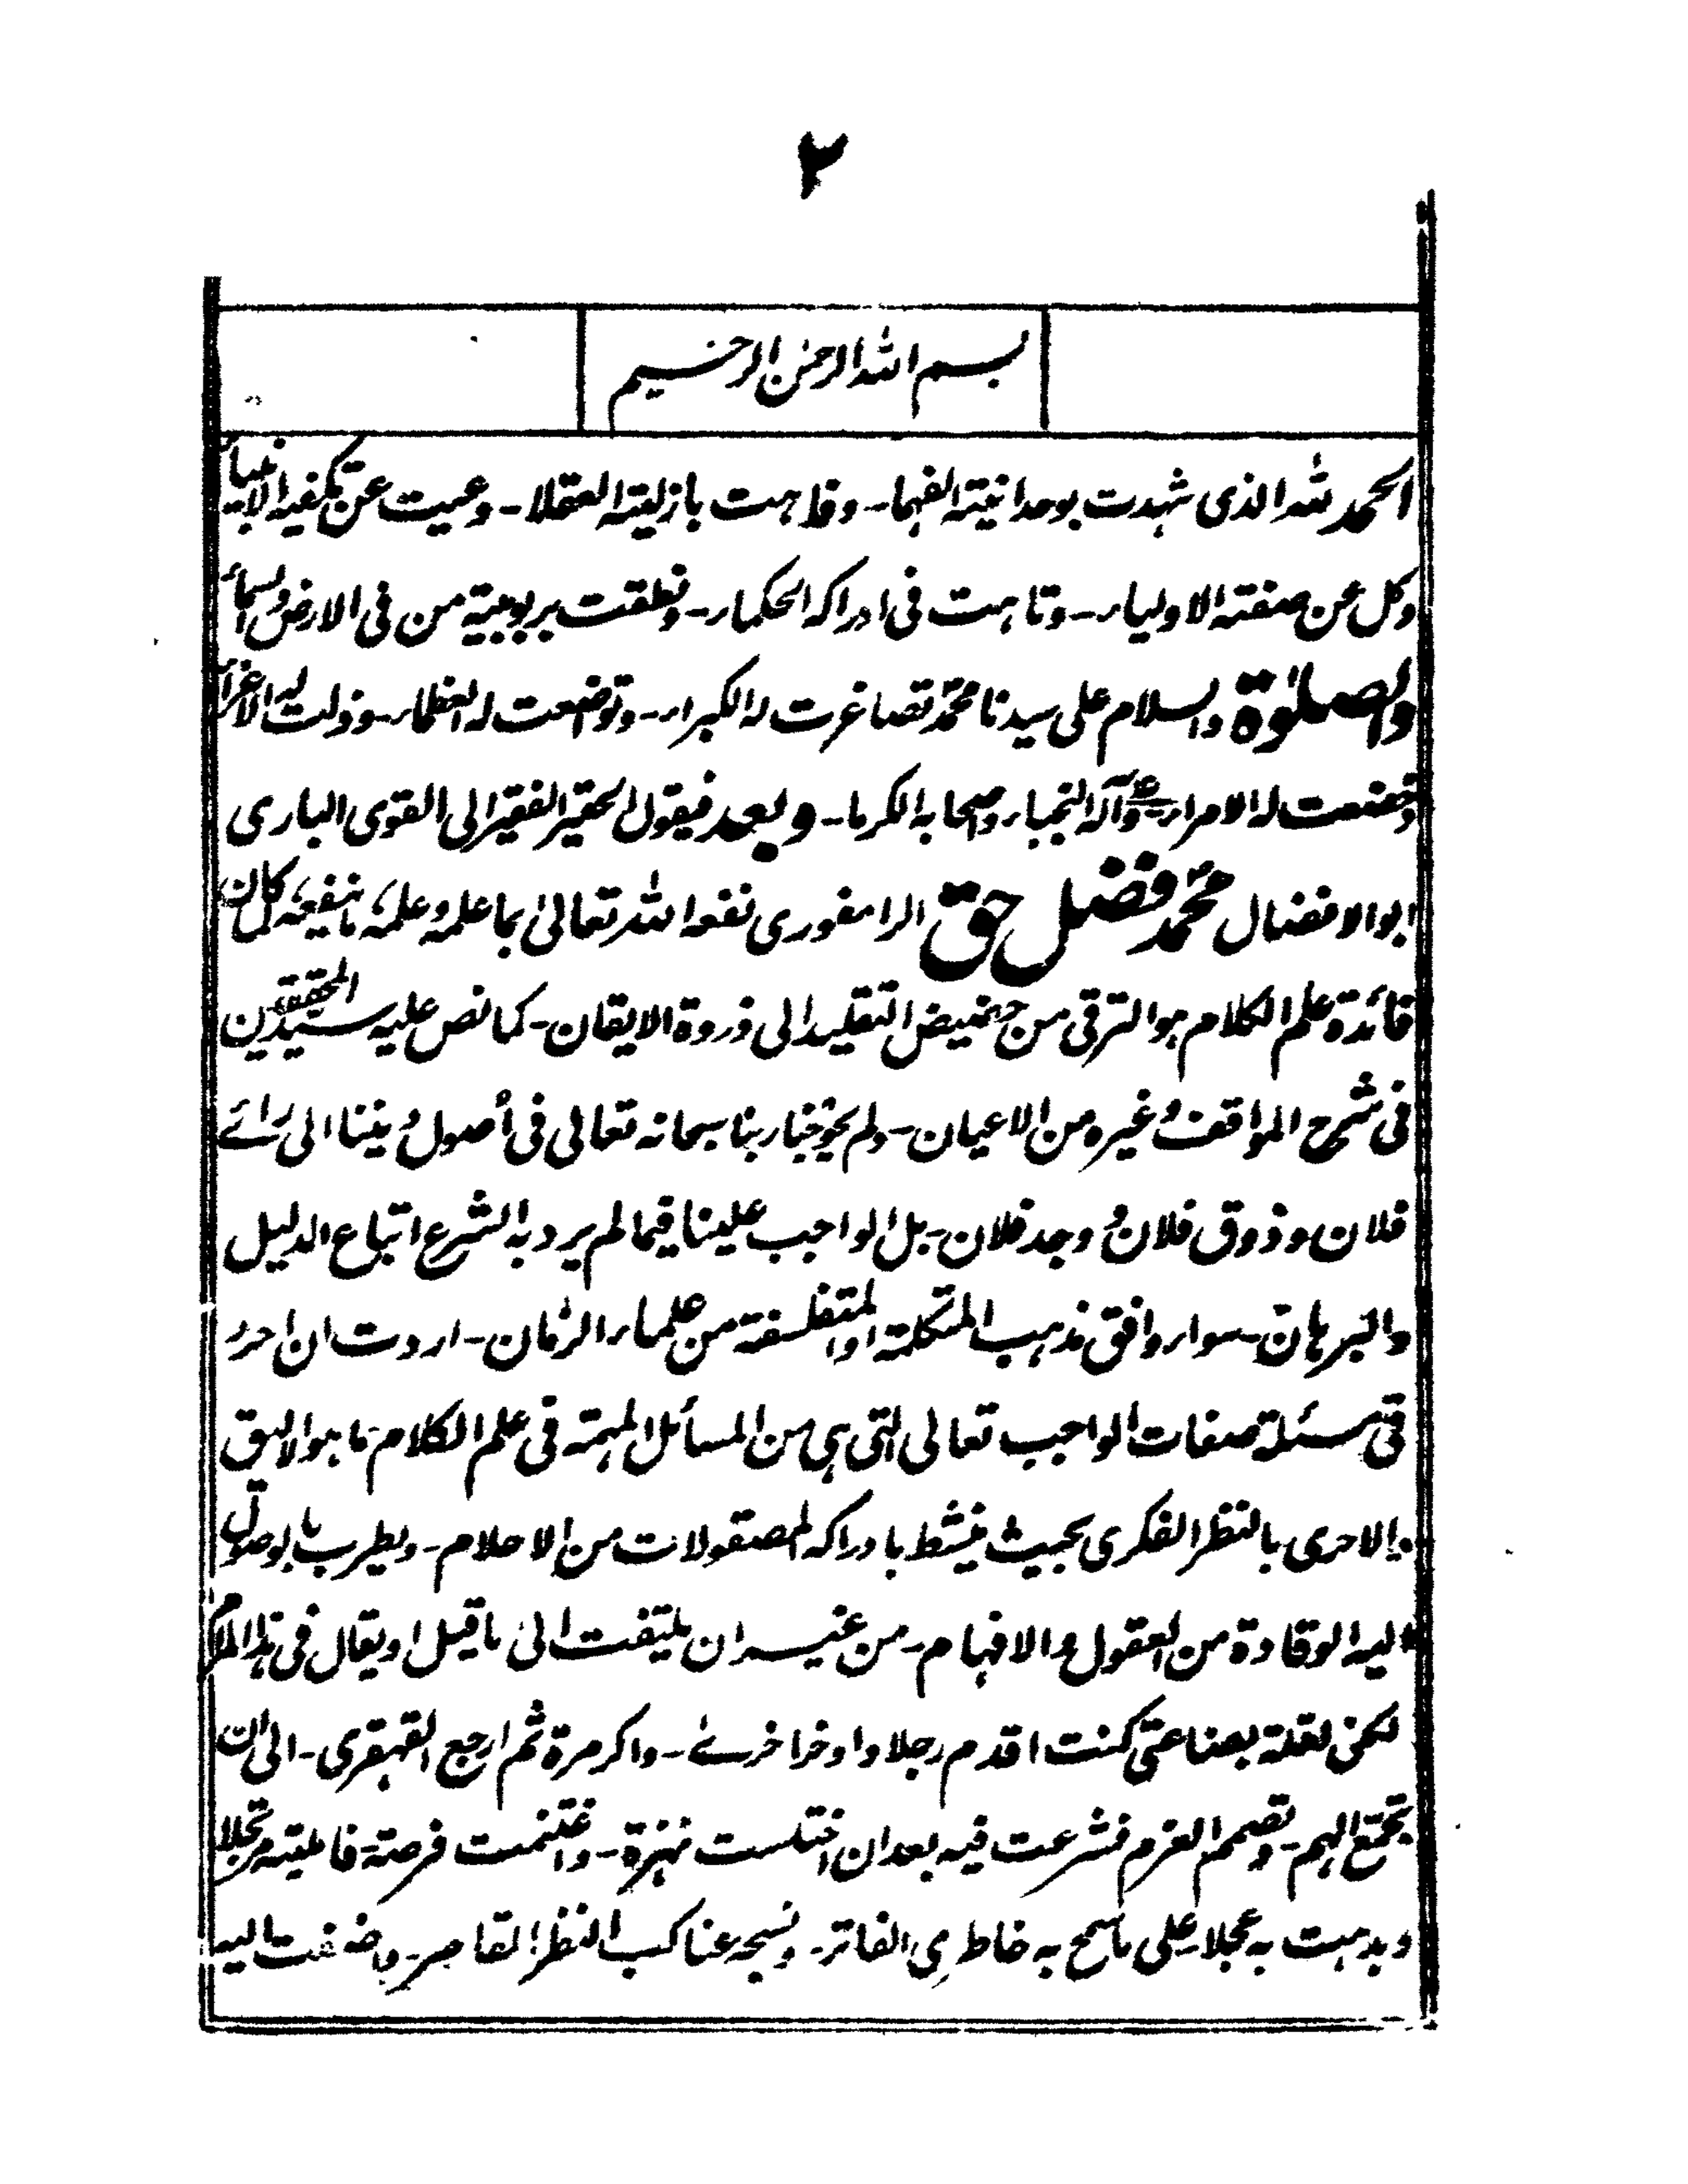 ٢
بسم الله الرحمن الرحيم
الحمد لله الذى شهدت بوحدانيته الفهما ـ وفاهت بازليته العقلا ـ وعميت عن تكفيه الانبياء
وكل عن صفته الاولياء ـ وتاهت فى ادراكه الحكماء ـ ونطقت بربوبية من فى الارض والسماء
والصلوة والسلام على سيدنا محمد تصاغرت له الكبراء ـ وتوضعت له العظماء ـ وذلت له الاعزاء
وخضعت له الامراء وآله النجباء وصحابه الكرما ـ وبعد فيقول الحقير الفقير الى القوى البارى
ابو الافضال محمد فضل حق الرامفورى نفعه الله تعالى بما علمه وعلمه ما ينفعه لما كان
فائدة علم الكلام هو الترقى من حضيض التقليد الى ذروة الايقان ـ كما نص عليه سيد المحققين
فى شرح المواقف وغيره من الاعيان ـ ولم يحوجنا ربنا سبحانه تعالى فى أصول ديننا الى رائے
فلان وذوق فلان ووجد فلان ـ بل الواجب علينا فيما لم يرد به الشرع اتباع الدليل
والبرهان ـ سواء وافق مذهب المتكلمة او المتفلسفة من علماء الزمان ـ اردت ان احرر
فى مسئلة صفات الواجب تعالى التى هى من المسائل المهمة فى علم الكلام ما هو الاليق
والاحرى بالنظر الفكرى بحيث ينشط بادراكه المصقولات من الاحلام ـ ويطرب بالوصول
اليه الوقادة من العقول والافهام ـ من غير ان يلتفت الى ما قيل او يقال فى هذا المرام
لكن لقلة بضاعتى كنت اقدم رجلا واوخر اخرے ـ واكر مرة ثم ارجع القهقرى ـ الى ان
تجمع الهم ـ وتصمم العزم فشرعت فيه بعد ان اختلست نهزة ـ واغتنمت فرصة فامليته مرتجلا
وبدهت به عجلا على ما سمح به خاطرى الفاتر ـ ونسجه عناكب النظر القاصر ـ واضفت اليه